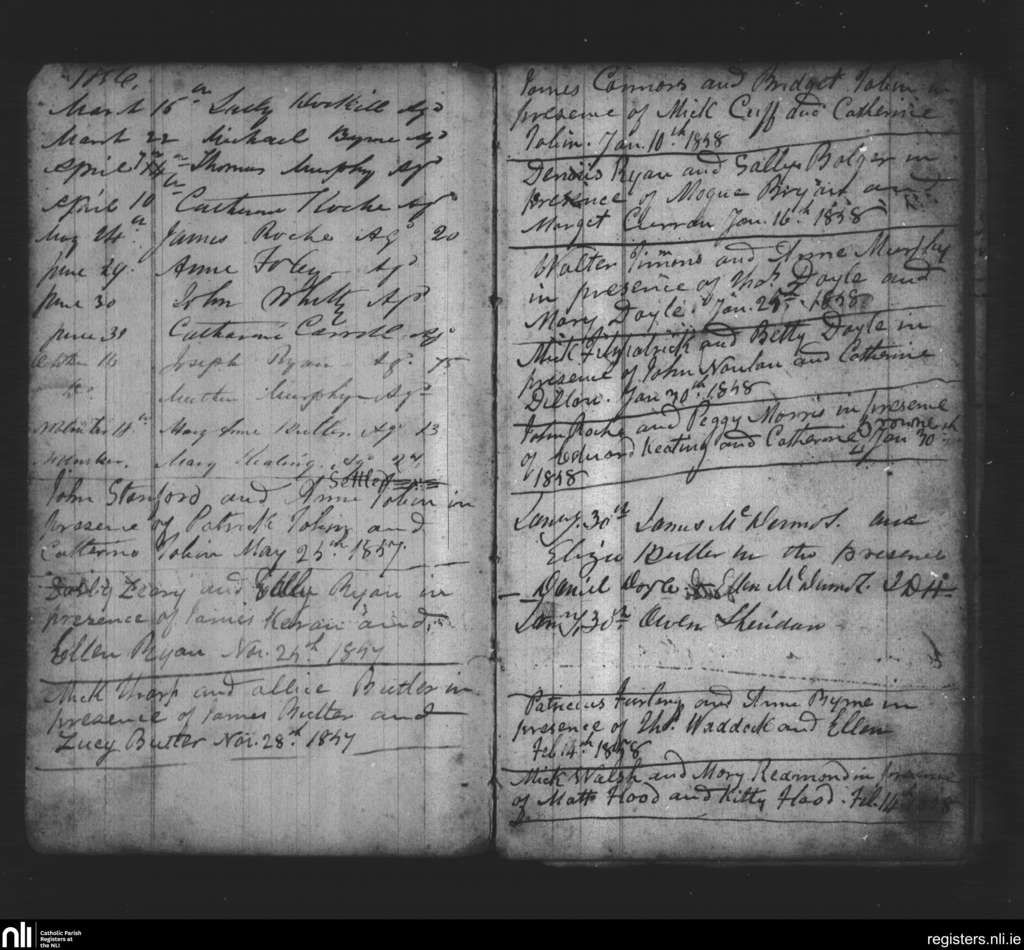 1856.
March 16th Sally Agd
March 22 Michael Byrne Agd
April Thomas Murphy Agd
April 10th Catherine Roche Agd
May 24th James Roche Agd 20
June 29. Anne Foley Agd
June 30 John Whitty Agd
June 30 Catharine Carroll Agd
16 Joseph Ryan Agd 75
do Murphy Agd
November 14th Mary Anne Butler Agd 13
November. Mary Keating Agd
Settled
John Stanford and Anne Tobin in
presence of Patrick Tobin and
Catherine Tobin May 25th 1857.
Leary and Ryan in
presence of James and
Ellen Ryan Nov. 25th 1857
Mick Tharp and Allice Butler in
presence of James Butler and
Lucy Butler Nov. 28th 1857
James Connors and Bridget Tobin in
presence of Mick Cuff and Catherine
Tobin. Jan. 10th 1858
Dennis Ryan and Sally Bolger in
presence of Mogue Bryan and
Marget Jan. 16th 1858
Walter Timmons and Anne Murphy
in presence of Thos Doyle and
Mary Doyle. Jan. 25th 1858
Mick Fitzpatrick and Betty Doyle in
presence of John Nowlan and Catherine
Dillon. Jan 30th 1858
John Roche and Peggy Morris in presence
of Edward Keating and Catherine Browne Jan 30th
1858
Jany. 30th James McDermot. and
Eliza Butler in the Presence
Daniel Doyle & Ellen McDermot.
Jany. 30th Owen Sheridan
Patricius Furlong and Anne Byrne in
presence of Thos. Waddock and Ellen
Feb 14th 1858
Mick Walsh and Mary Redmond in presence
of Matt Flood and Kitty Flood. Feb. 14th
nli Catholic Parish
Registers at
the NLI
registers.nli.ie